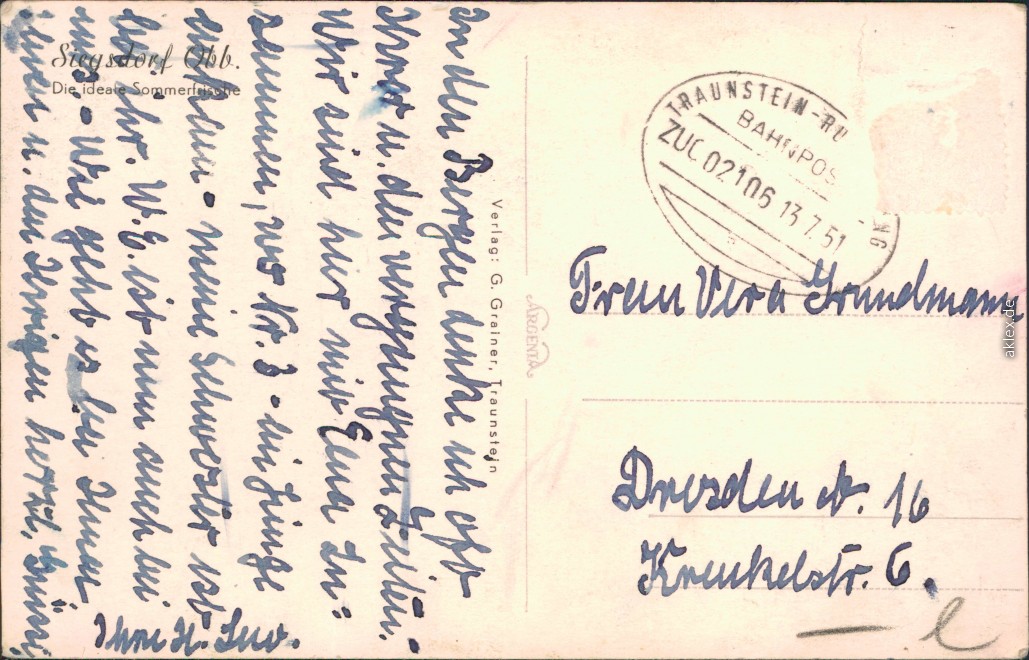 Siegsdorf Obb.
Die ideale Sommerfrische
In den Bergen denke ich oft
Ihrer u. der vergnügten Zeiten. -
Wir sind hier mit zu-
sammen, wo Nr. 3 - ein
ankam - meine Schwester ist
ihr. W.E. ist nun auch bei
uns. - Wie geht es bei Ihnen
Ihnen u. den Ihrigen herzl. Grüsse
Ihre H.
Verlag: G. Grainer, Traunstein
ARGENTA
TRAUNSTEIN-RU
BAHNPOS
ZUG 02106 13.7.51
NG
Frau Vera Grundmann
Dresden A. 16
Krenkelstr. 6.
aklex.de